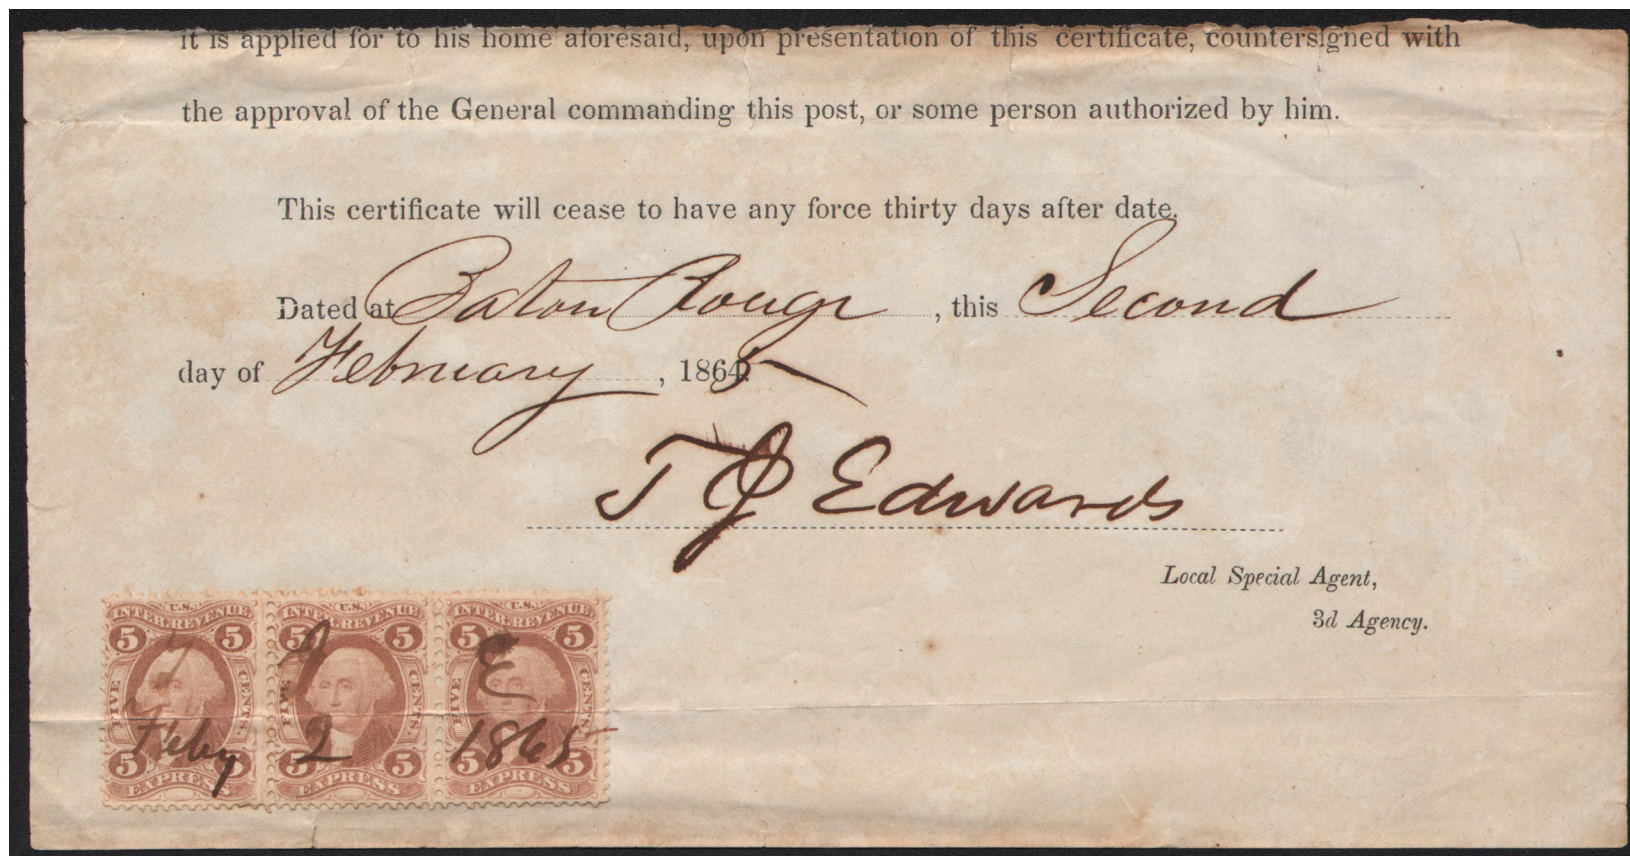 it is applied for to his home aforesaid, upon presentation of this certificate, countersigned with
the approval of the General commanding this post, or some person authorized by him.
This certificate will cease to have any force thirty days after date.
Dated at Baton Rouge, this Second
day of February, 1865
T J Edwards
Local Special Agent,
3d Agency.
U.S. U.S. U.S.
INTER. REVENUE INTER. REVENUE INTER. REVENUE
5 5 5 5 5 5
T J E
FIVE CENTS. FIVE CENTS. FIVE CENTS.
Feby 2 1865
5 5 5 5 5 5
EXPRESS EXPRESS EXPRESS